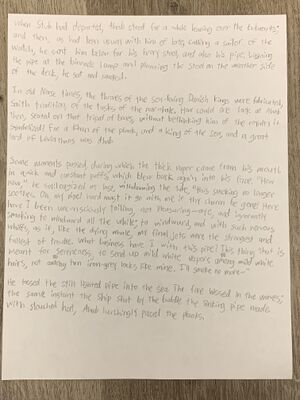 When Stub had departed, Ahab stood for a while leaning over the bulwarks;
and then, as had been usual with him of late, calling a sailor of the
watch, he sent him below for his ivory stool, and also his pipe. Lighting
the pipe at the binnacle lamp and planting the stool on the weather side
of the deck, he sat and smoked.
In old Norse times, the thrones of the sea-loving Danish kings were fabricated,
saith tradition, of the tusks of the narwhale. How could one look at Ahab
then, seated on that tripod of bones, without bethinking him of the royalty it
symbolized? For a Khan of the plank, and a king of the sea, and a great
lord of Leviathans was Ahab.
Some moments passed, during which the thick vapor came from his mouth
in quick and constant puffs, which blew back again into his face. "How
now," he soliloquized at last, withdrawing the tube, "this smoking no longer
soothes. Oh, my pipe! hard must it go with me if thy charm be gone! Here
have I been unconsciously toiling, not pleasuring—aye, and ignorantly
smoking to windward all the while; to windward, and with such nervous
whiffs, as if, like the dying whale, my final jets were the strongest and
fullest of trouble. What business have I with this pipe? This thing that is
meant for sereneness, to send up mild white vapors among mild white
hairs, not among torn iron-grey locks like mine. I'll smoke no more—"
He tossed the still lighted pipe into the sea. The fire hissed in the waves;
the same instant the ship shot by the bubble the sinking pipe made.
With slouched hat, Ahab lurchingly paced the planks.